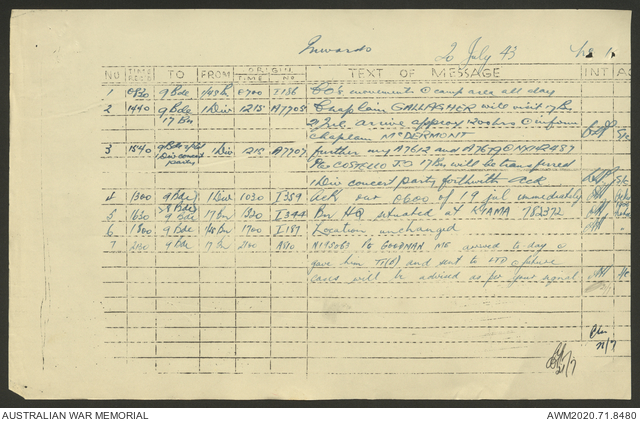 Inwards 20 July 43
NO TIME REC'D TO FROM ORIGIN TIME NO TEXT OF MESSAGE INT
1 0830 9 Bde 0700 I186 CO's movements camp area all day
2 1440 9 Bde 1 Div 1215 A7705 Chaplain GALLAGHER will visit 7 Bn
17 Bn arrive approx hrs confirm
Chaplain McDERMONT
3 1540 9 Bde 1 Div 1215 A7707 further my A7612 and
Div concert party Pte COSTELLO TO 17 Bn will be transferred
1 Div concert party forthwith ack
4 1300 9 Bde 1 Div 1030 I359 Ack our 0600 of 19 Jul immediately
5 1630 9 Bde 17 Bn 1520 I344 Bn HQ situated at KIAMA 782372
6 1800 9 Bde 1700 I189 Location unchanged
7 9 Bde 17 Bn GOODMAN arrived to day
gave him and sent to LTD future
cases will be advised as per your signal
21/7
21/7
AUSTRALIAN WAR MEMORIAL AWM2020.71.8480